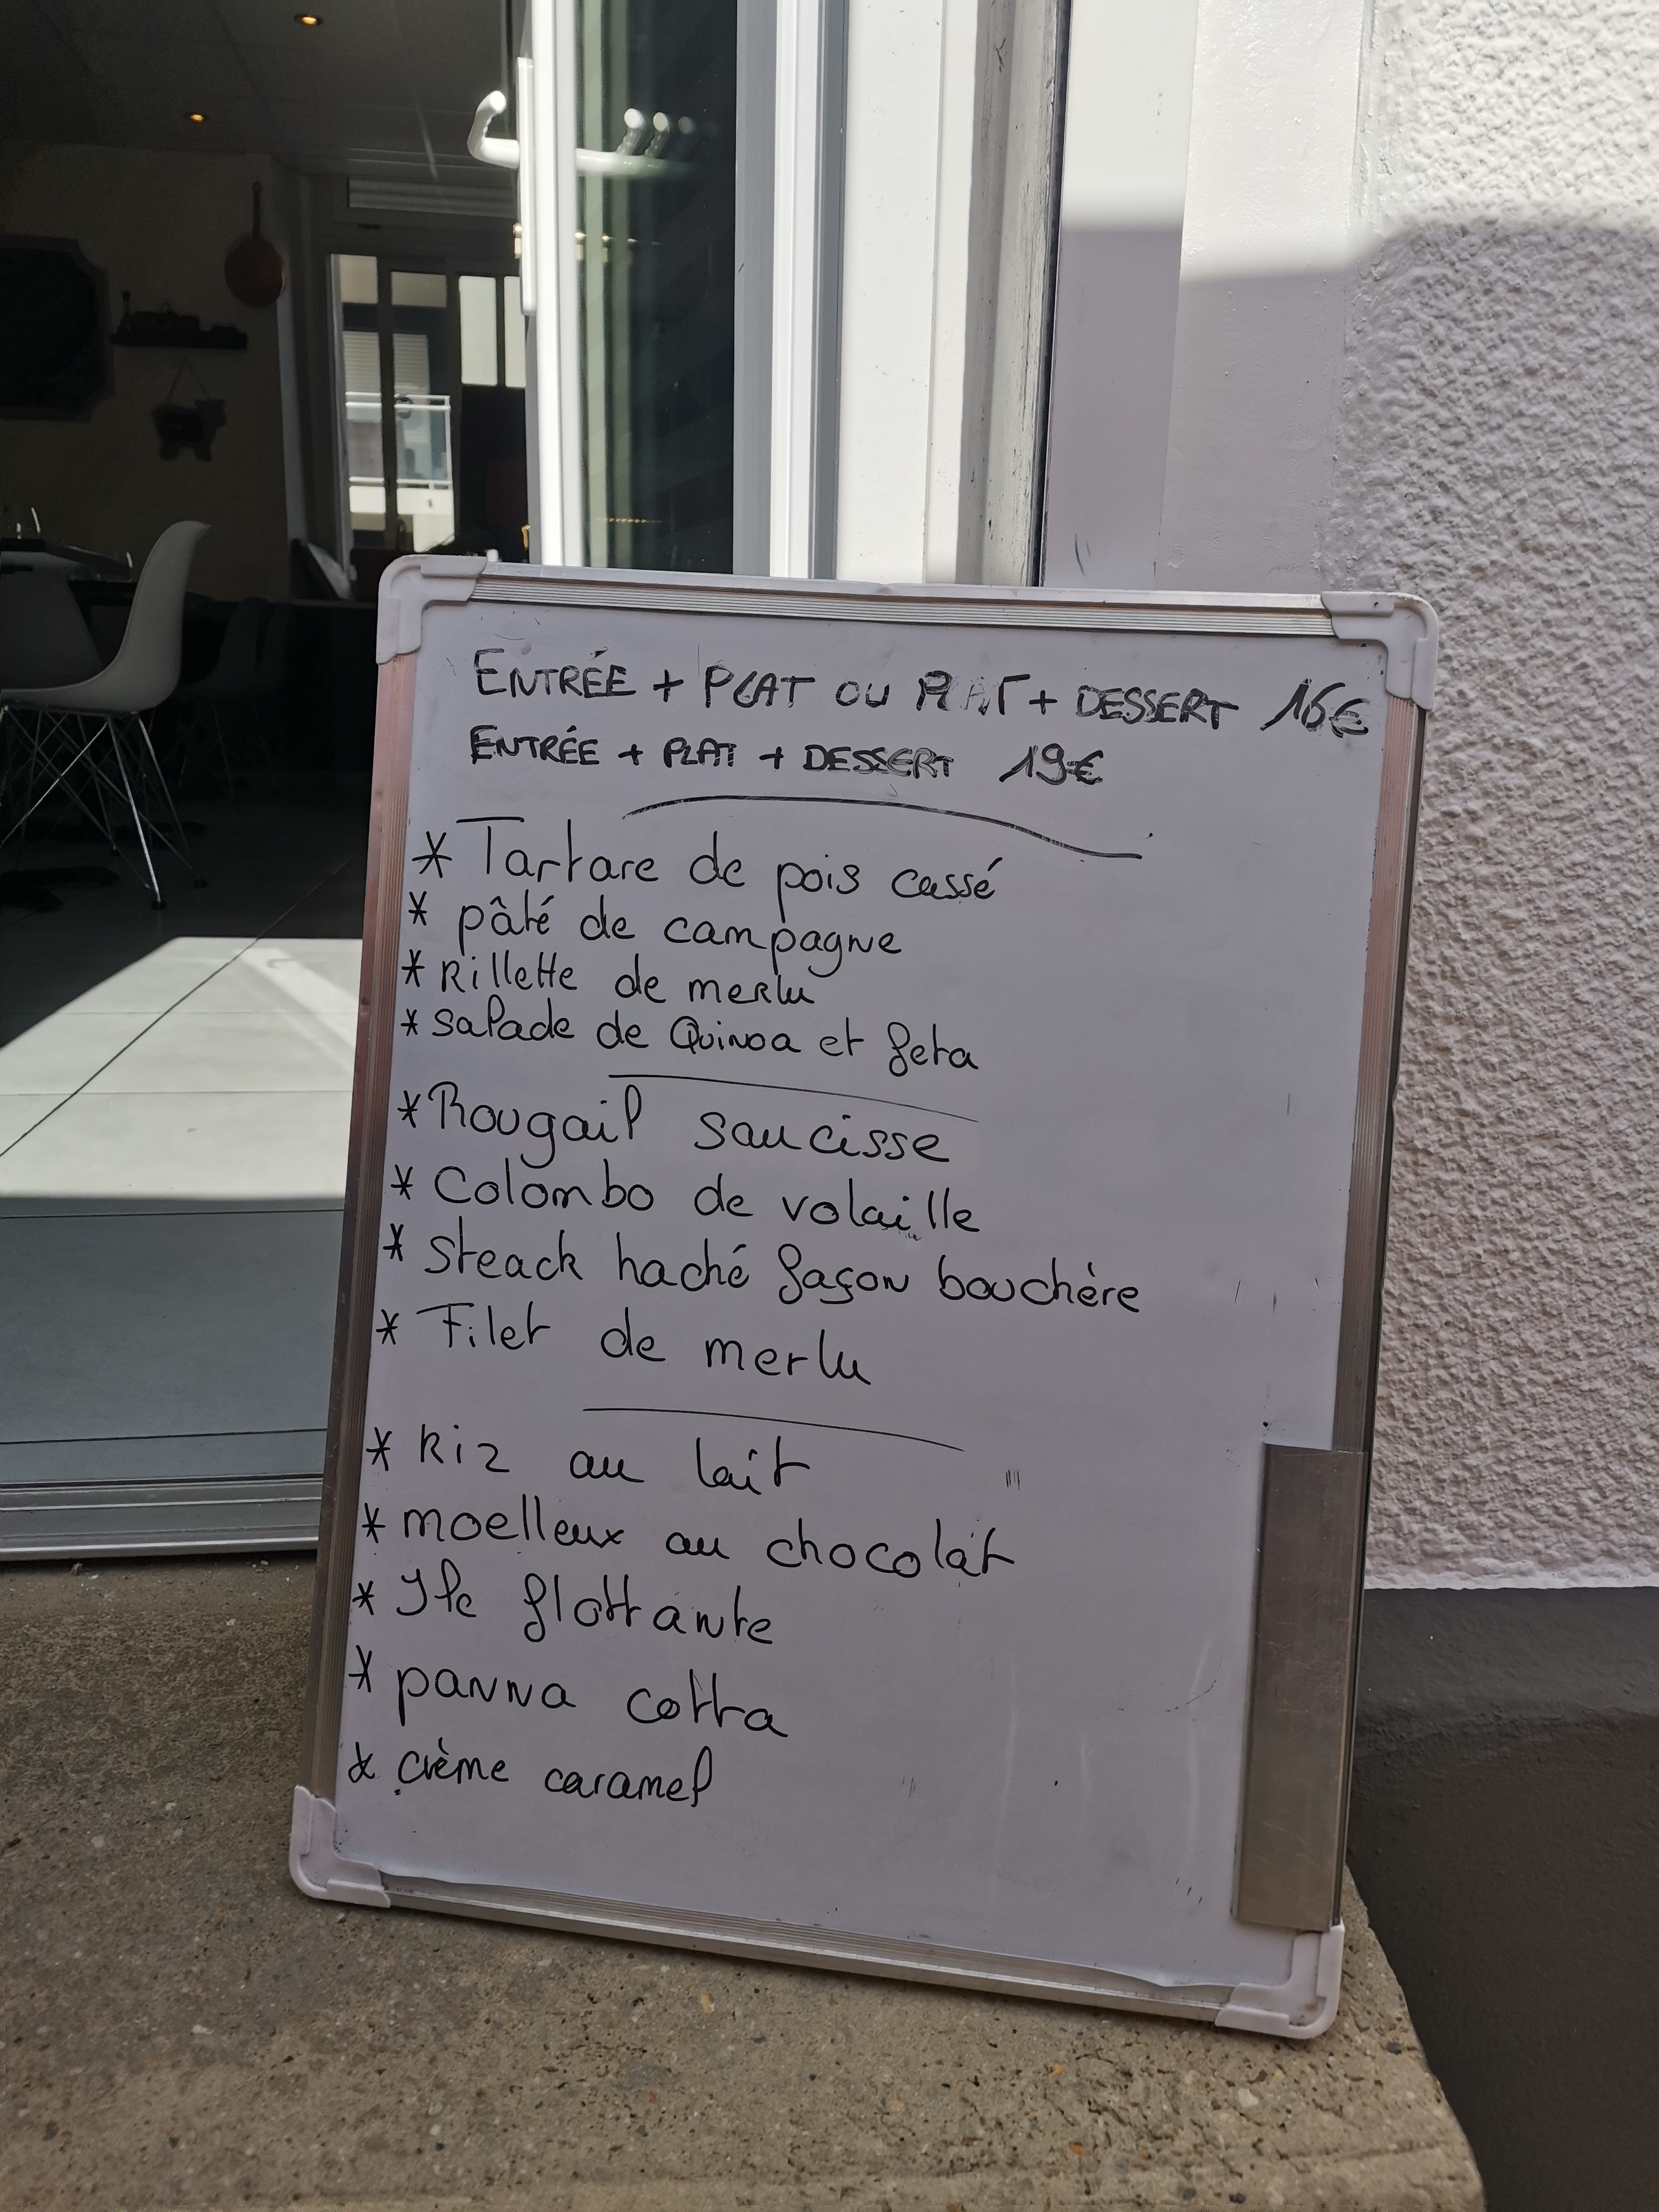 ENTRÉE + PLAT OU PLAT + DESSERT 16€
ENTRÉE + PLAT + DESSERT 19€
* Tartare de pois cassé
* pâté de campagne
* Rillette de merlu
* salade de Quinoa et feta
* Rougail saucisse
* Colombo de volaille
* Steack haché façon bouchère
* Filet de merlu
* Riz au lait
* moelleux au chocolat
* Ile flottante
* panna cotta
* crème caramel